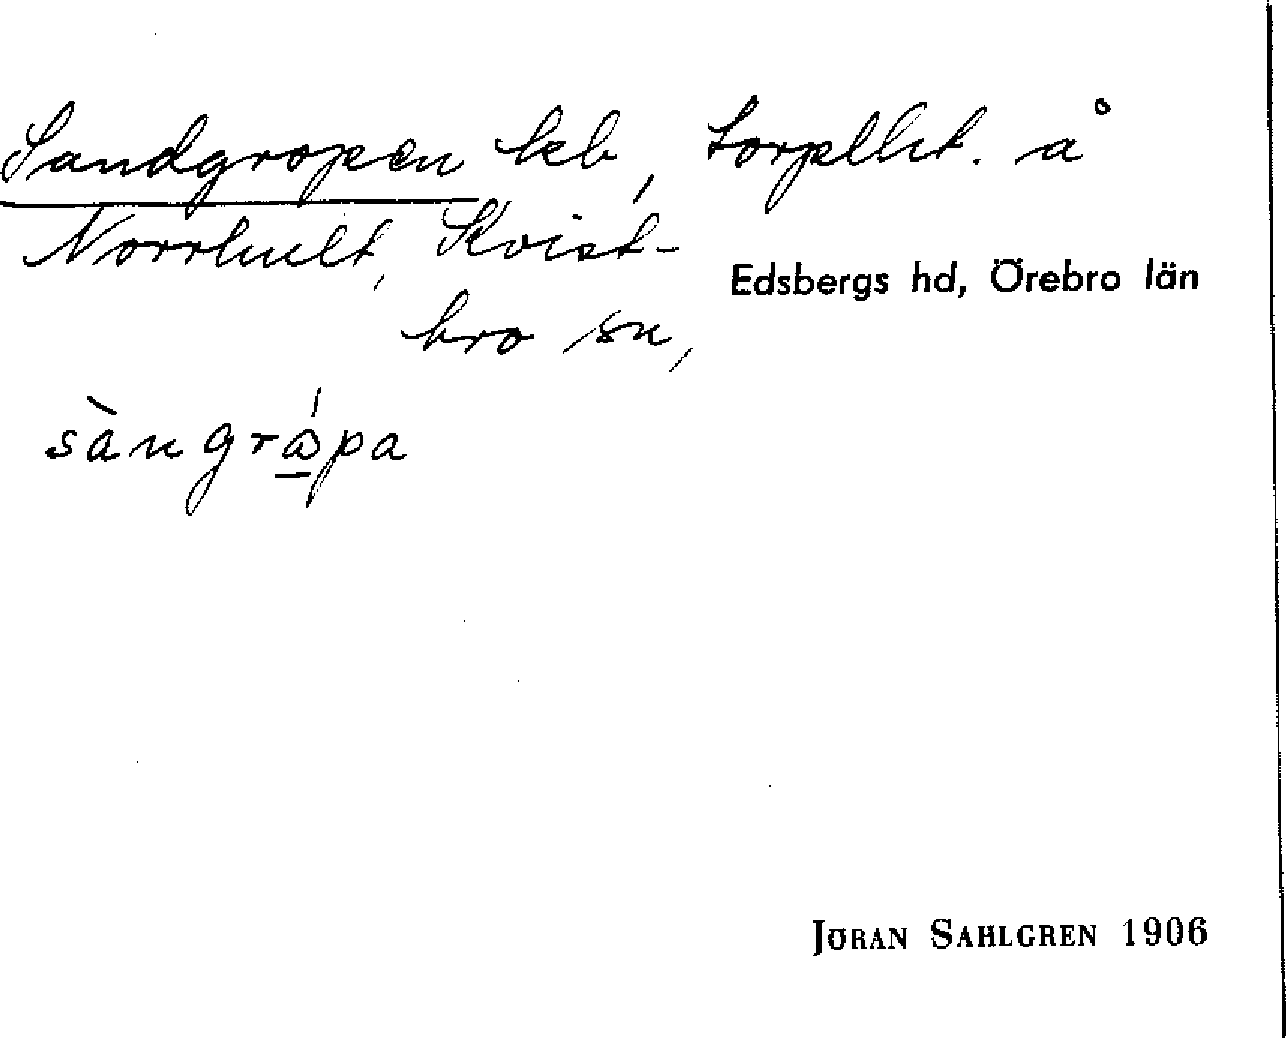 Sandgropen lkb, torplht. å
Norrhult, Kvist-
bro sn,
Edsbergs hd, Örebro län
sàngråpa
JÖRAN SAHLGREN 1906